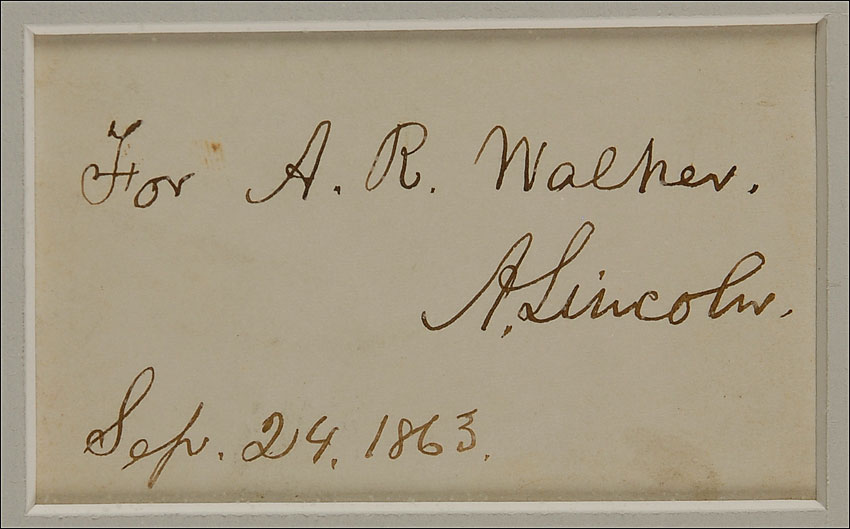 For A. R. Walker.
A. Lincoln.
Sep. 24, 1863.